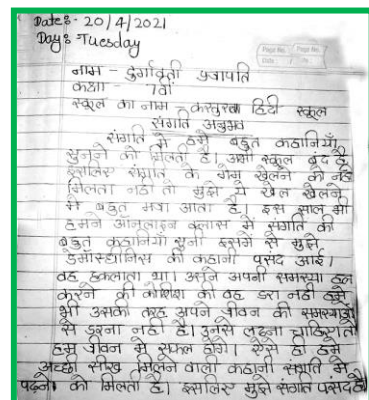 Date:- 20/4/2021
Day:- Tuesday
Page No.
Date
नाम - दुर्गावती प्रजापति
कक्षा - 7वी
स्कूल का नाम - कस्तुरबा हिंदी स्कूल
संगति अनुभव
संगति में हमें बहुत कहानियाँ
सुनने को मिलती है। अभी स्कूल बंद है
इसलिए संगति के गेम खेलने को नही
मिलता नही तो मुझे ये खेल खेलने
में बहुत मजा आता है। इस साल भी
हमने ऑनलाइन क्लास में संगति की
बहुत कहानियाँ सुनी इसमें से मुझे
डेमॉस्थनिस की कहानी पसंद आई।
वह हकलाता था। उसने अपनी समस्या हल
करने की कोशिश की वह डरा नही हमे
भी उसकी तरह अपने जीवन की समस्याओ
से डरना नही है। उनसे लढ़ना चाहिए तो
हम जीवन में सफल होंगे। ऐसे ही हमे
अच्छी सीख मिलने वाली कहानी संगति में
पढ़ने को मिलती है। इसलिए मुझे संगति पसंद है।